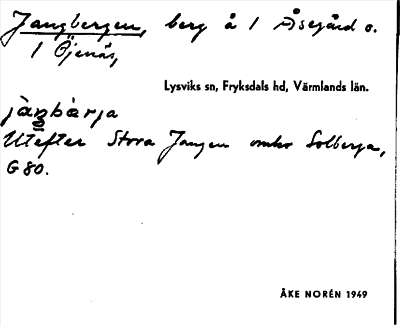 Jangbergen, berg å 1 Åsegård o.
1 Öjenäs,
Lysviks sn, Fryksdals hd, Värmlands län.
jàŋbæ̀rja
Utefter Stora Jangen omkr Solberga,
G 80.
ÅKE NORÉN 1949